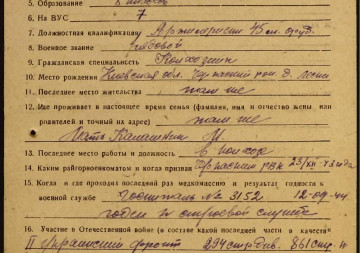 5. Образование
6. На ВУС 7
7. Должностная квалификация Артиллерист 45 мм. оруд.
8. Военное звание рядовой
9. Гражданская специальность Колхозник
10. Место рождения Киевская обл. рон. д.
11. Последнее место жительства там же
12. Где проживает в настоящее время семья (фамилия, имя и отчество жены или
родителей и точный их адрес) там же
Мать
13. Последнее место работы и должность в колхозе
14. Каким райгорвоенкоматом и когда призван РВК 23/XII-43 года
15. Когда и где проходил последний раз медкомиссию и результат годности к
военной службе Госпиталь № 3152 12-09-44
годен к строевой службе
16. Участие в Отечественной войне (в составе какой последней части в качестве
II Украинский фронт 294 стр. див. 861 стр. п